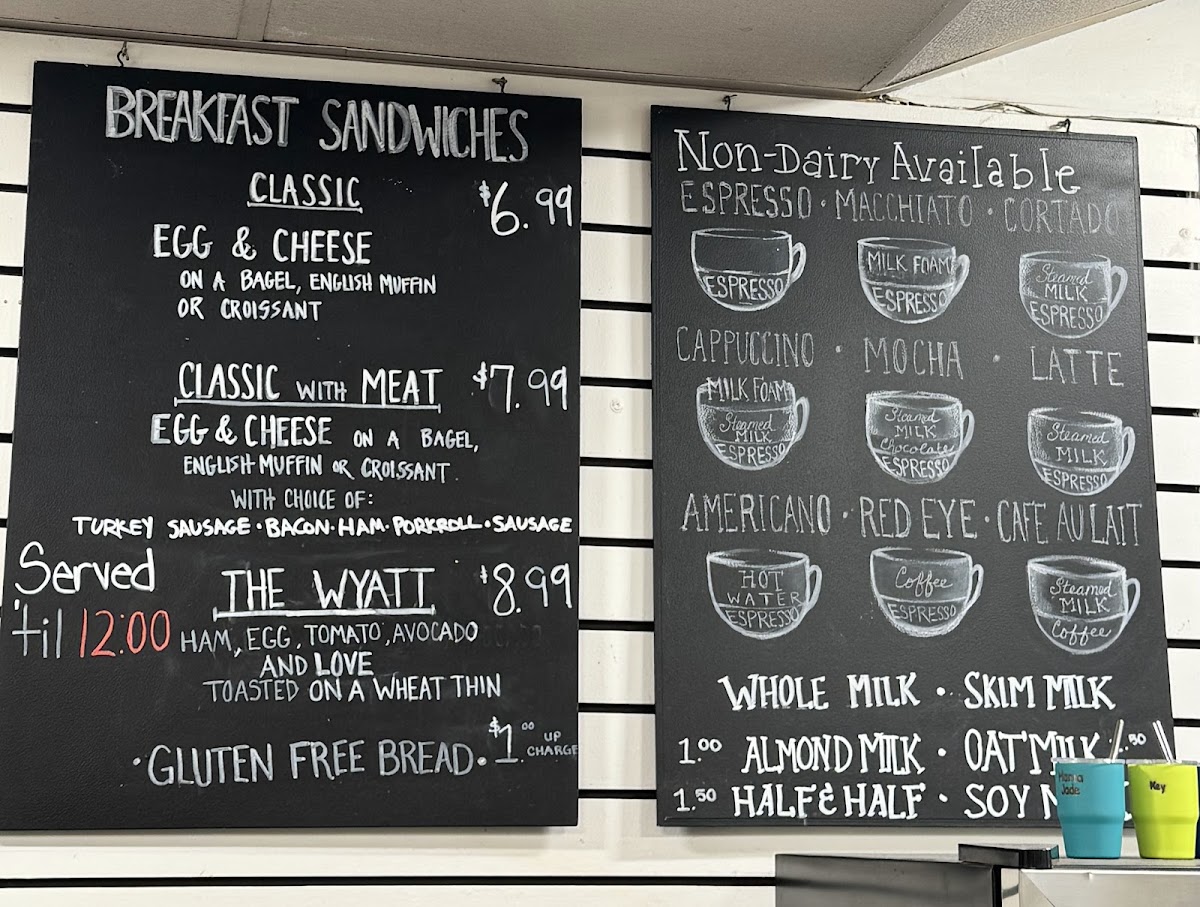 BREAKFAST SANDWICHES
CLASSIC $6.99
EGG & CHEESE
ON A BAGEL, ENGLISH MUFFIN
OR CROISSANT
CLASSIC WITH MEAT $7.99
EGG & CHEESE ON A BAGEL,
ENGLISH MUFFIN OR CROISSANT.
WITH CHOICE OF:
TURKEY SAUSAGE · BACON · HAM · PORKROLL · SAUSAGE
Served
'til 12:00
THE WYATT $8.99
HAM, EGG, TOMATO, AVOCADO
AND LOVE
TOASTED ON A WHEAT THIN
· GLUTEN FREE BREAD · $1.00 UP
CHARGE
Non-Dairy Available
ESPRESSO · MACCHIATO · CORTADO
ESPRESSO
MILK FOAM
ESPRESSO
Steamed
MILK
ESPRESSO
CAPPUCCINO · MOCHA · LATTE
MILK FOAM
Steamed
MILK
ESPRESSO
Steamed
MILK
Chocolate
ESPRESSO
Steamed
MILK
ESPRESSO
AMERICANO · RED EYE · CAFE AU LAIT
HOT
WATER
ESPRESSO
Coffee
ESPRESSO
Steamed
MILK
Coffee
WHOLE MILK · SKIM MILK
1.00 ALMOND MILK · OAT MILK .50
1.50 HALF & HALF · SOY
Jades
Key